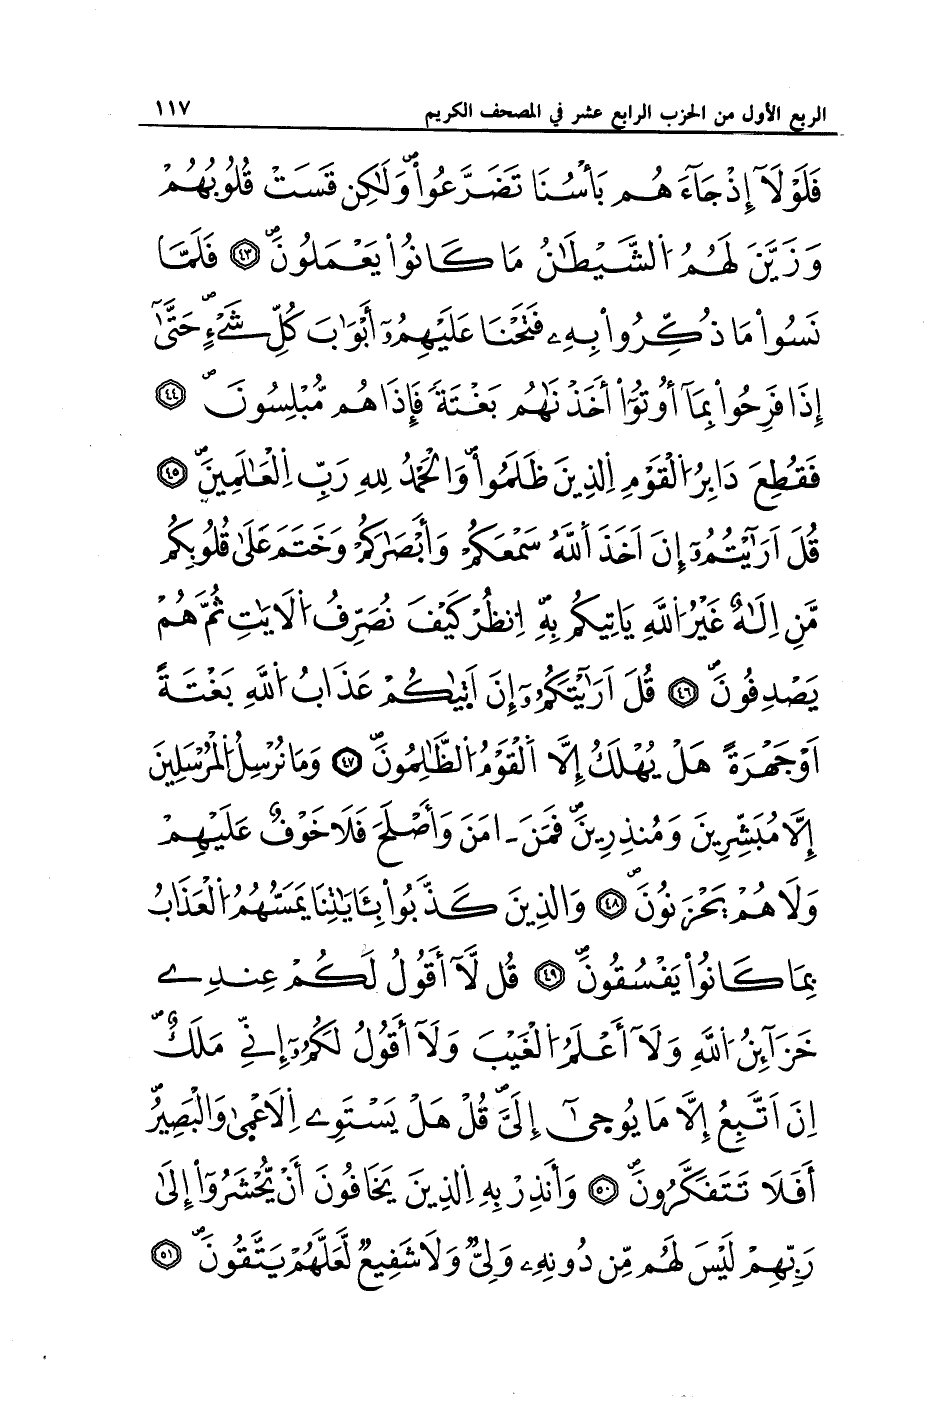 الربع الأول من الحزب الرابع عشر في المصحف الكريم ١١٧
فَلَوْلَآ إِذْ جَآءَهُم بَأْسُنَا تَضَرَّعُواْۖ وَلَٰكِن قَسَتْ قُلُوبُهُمْ
وَزَيَّنَ لَهُمُ اَلشَّيْطَٰنُ مَا كَانُواْ يَعْمَلُونَۖ ٤٣ فَلَمَّا
نَسُواْ مَا ذُكِّرُواْ بِهِۦ فَتَحْنَا عَلَيْهِمُۥٓ أَبْوَٰبَ كُلِّ شَےْءٍۖ حَتَّىٰٓ
إِذَا فَرِحُواْ بِمَآ أُوتُوٓاْ أَخَذْنَٰهُم بَغْتَةً فَإِذَا هُم مُّبْلِسُونَۖ ٤٤
فَقُطِعَ دَابِرُ اُلْقَوْمِ اِلذِينَ ظَلَمُواْۖ وَالْحَمْدُ لِلهِ رَبِّ اِلْعَٰلَمِينَۖ ٤٥
قُلَ اَرَٰٓيْتُمُۥٓ إِنَ اَخَذَ اَللَّهُ سَمْعَكُمْ وَأَبْصَٰرَكُمْ وَخَتَمَ عَلَىٰ قُلُوبِكُم
مَّنِ اِلَٰهٌ غَيْرُ اُللَّهِ يَاتِيكُم بِهِۖ اِنظُرْ كَيْفَ نُصَرِّفُ اُلَايَٰتِ ثُمَّ هُمْ
يَصْدِفُونَۖ ٤٦ قُلَ اَرَٰٓيْتَكُمُۥٓ إِنَ اَتٜيٰكُمْ عَذَابُ اُللَّهِ بَغْتَةً
اَوْ جَهْرَةً هَلْ يُهْلَكُ إِلَّا اَلْقَوْمُ اُلظَّٰلِمُونَۖ ٤٧ وَمَا نُرْسِلُ اُلْمُرْسَلِينَ
إِلَّا مُبَشِّرِينَ وَمُنذِرِينَۖ فَمَنَ ـ امَنَ وَأَصْلَحَ فَلَا خَوْفٌ عَلَيْهِمْ
وَلَا هُمْ يَحْزَنُونَۖ ٤٨ وَالذِينَ كَذَّبُواْ بِـَٔايَٰتِنَا يَمَسُّهُمُ اُلْعَذَابُ
بِمَا كَانُواْ يَفْسُقُونَۖ ٤٩ قُل لَّآ أَقُولُ لَكُمْ عِندِے
خَزَآئِنُ اُللَّهِ وَلَآ أَعْلَمُ اُلْغَيْبَ وَلَآ أَقُولُ لَكُمُۥٓ إِنِّے مَلَكٌۖ
اِنَ اَتَّبِعُ إِلَّا مَا يُوحٜىٰٓ إِلَيَّۖ قُلْ هَلْ يَسْتَوِے اِلَاعْمٜىٰ وَالْبَصِيرُۖ
أَفَلَا تَتَفَكَّرُونَۖ ٥٠ وَأَنذِرْ بِهِ اِلذِينَ يَخَافُونَ أَنْ يُّحْشَرُوٓاْ إِلَىٰ
رَبِّهِمْ لَيْسَ لَهُم مِّن دُونِهِۦ وَلِيٌّ وَلَا شَفِيعٌ لَّعَلَّهُمْ يَتَّقُونَۖ ٥١